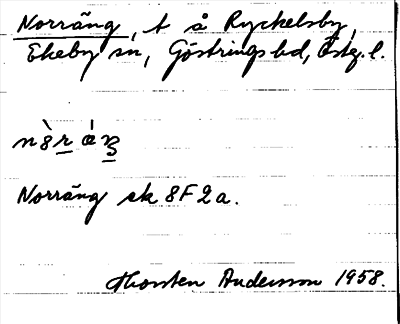 Norräng, t å Ryckelsby,
Ekeby sn, Göstrings hd, Östg. l.
Norräng ek 8F2a.
Thorsten Andersson 1958.